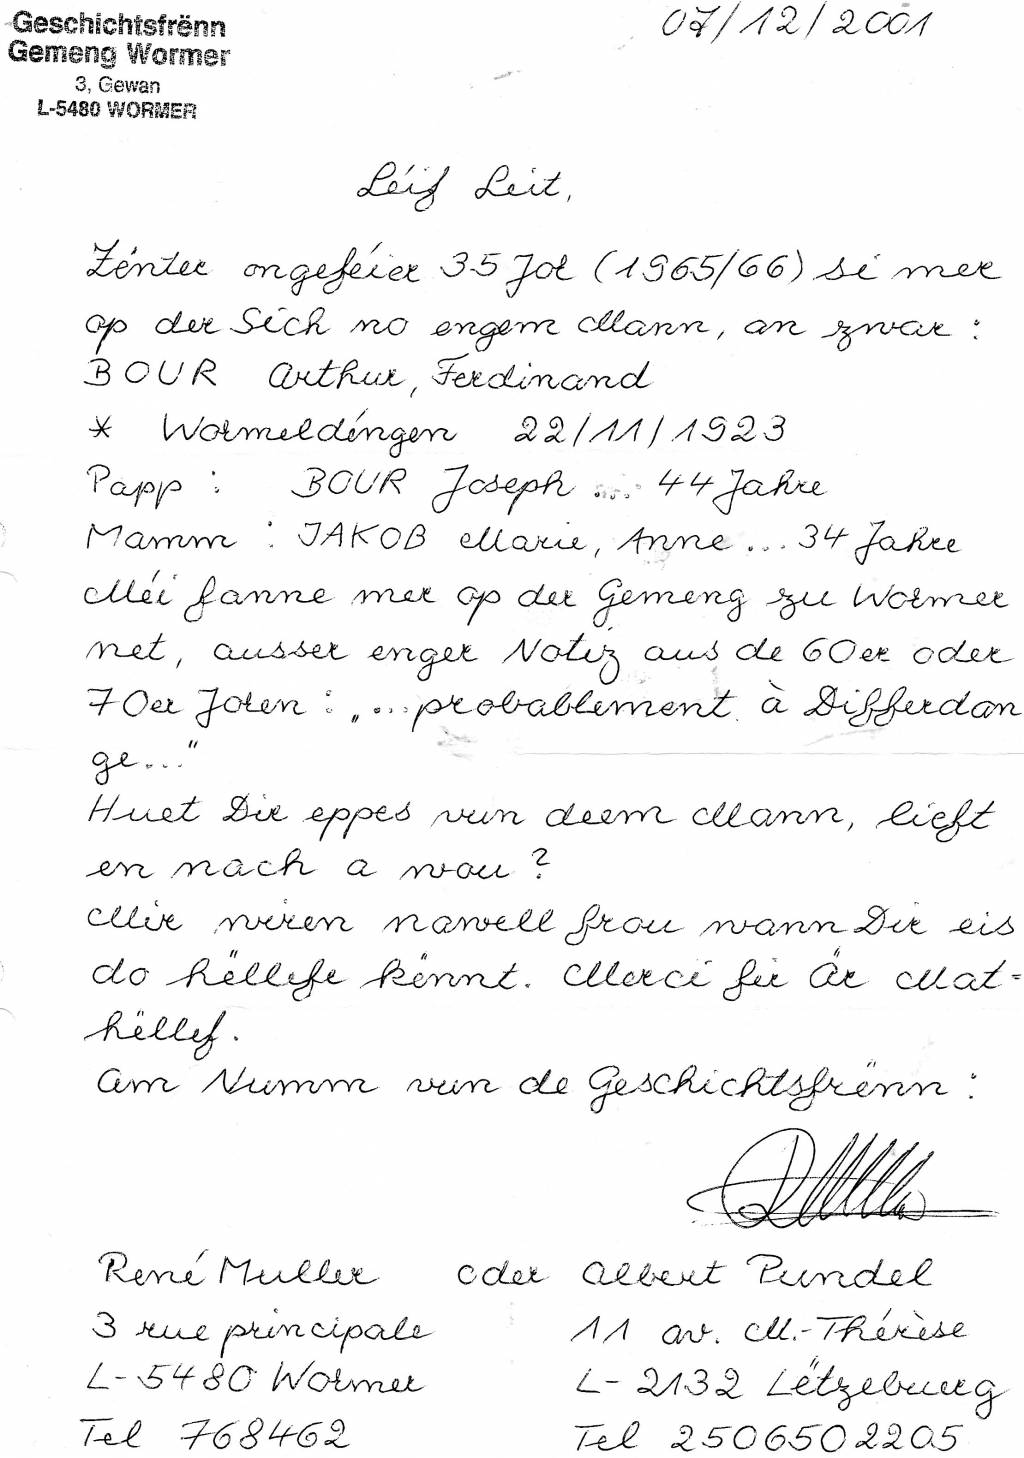 Geschichtsfrënn
Gemeng Wormer
3, Gewan
L-5480 WORMER
07/12/2001
Léif Leit,
Zënter ongeféier 35 Jor (1965/66) si mer
op der Sich no engem Mann, an zwar :
BOUR Arthur, Ferdinand
* Wormeldéngen 22/11/1923
Papp : BOUR Joseph .... 44 Jahre
Mamm : JAKOB Marie, Anne ... 34 Jahre
Méi fanne mer op der Gemeng zu Wormer
net, ausser enger Notiz aus de 60er oder
70er Joren : „...probablement à Differdan
ge..."
Huet Dir eppes vun deem Mann, lieft
en nach a wou ?
Mir wiren nawell frou wann Dir eis
do hëllefe kënnt. Merci fir Är Mat=
hëllef.
Am Numm vun de Geschichtsfrënn :
René Muller oder Albert Pundel
3 rue principale 11 av. M.-Thérèse
L-5480 Wormer L-2132 Lëtzebuerg
Tel 768462 Tel 2506502205